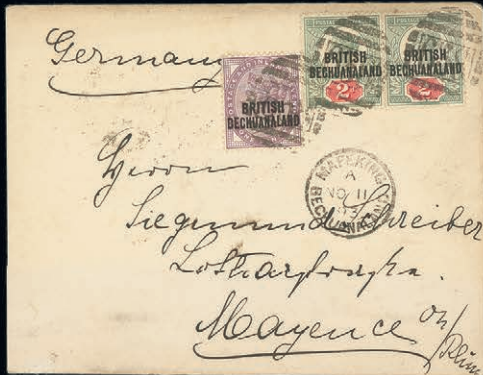 Germany
BRITISH
BECHUANALAND
BRITISH
BECHUANALAND
2
BRITISH
BECHUANALAND
2
MAFEKING
A
NO 11
93
BECHUANALAND
Herrn
Siegmund Schreiber
Lotharstrasse.
Mayence